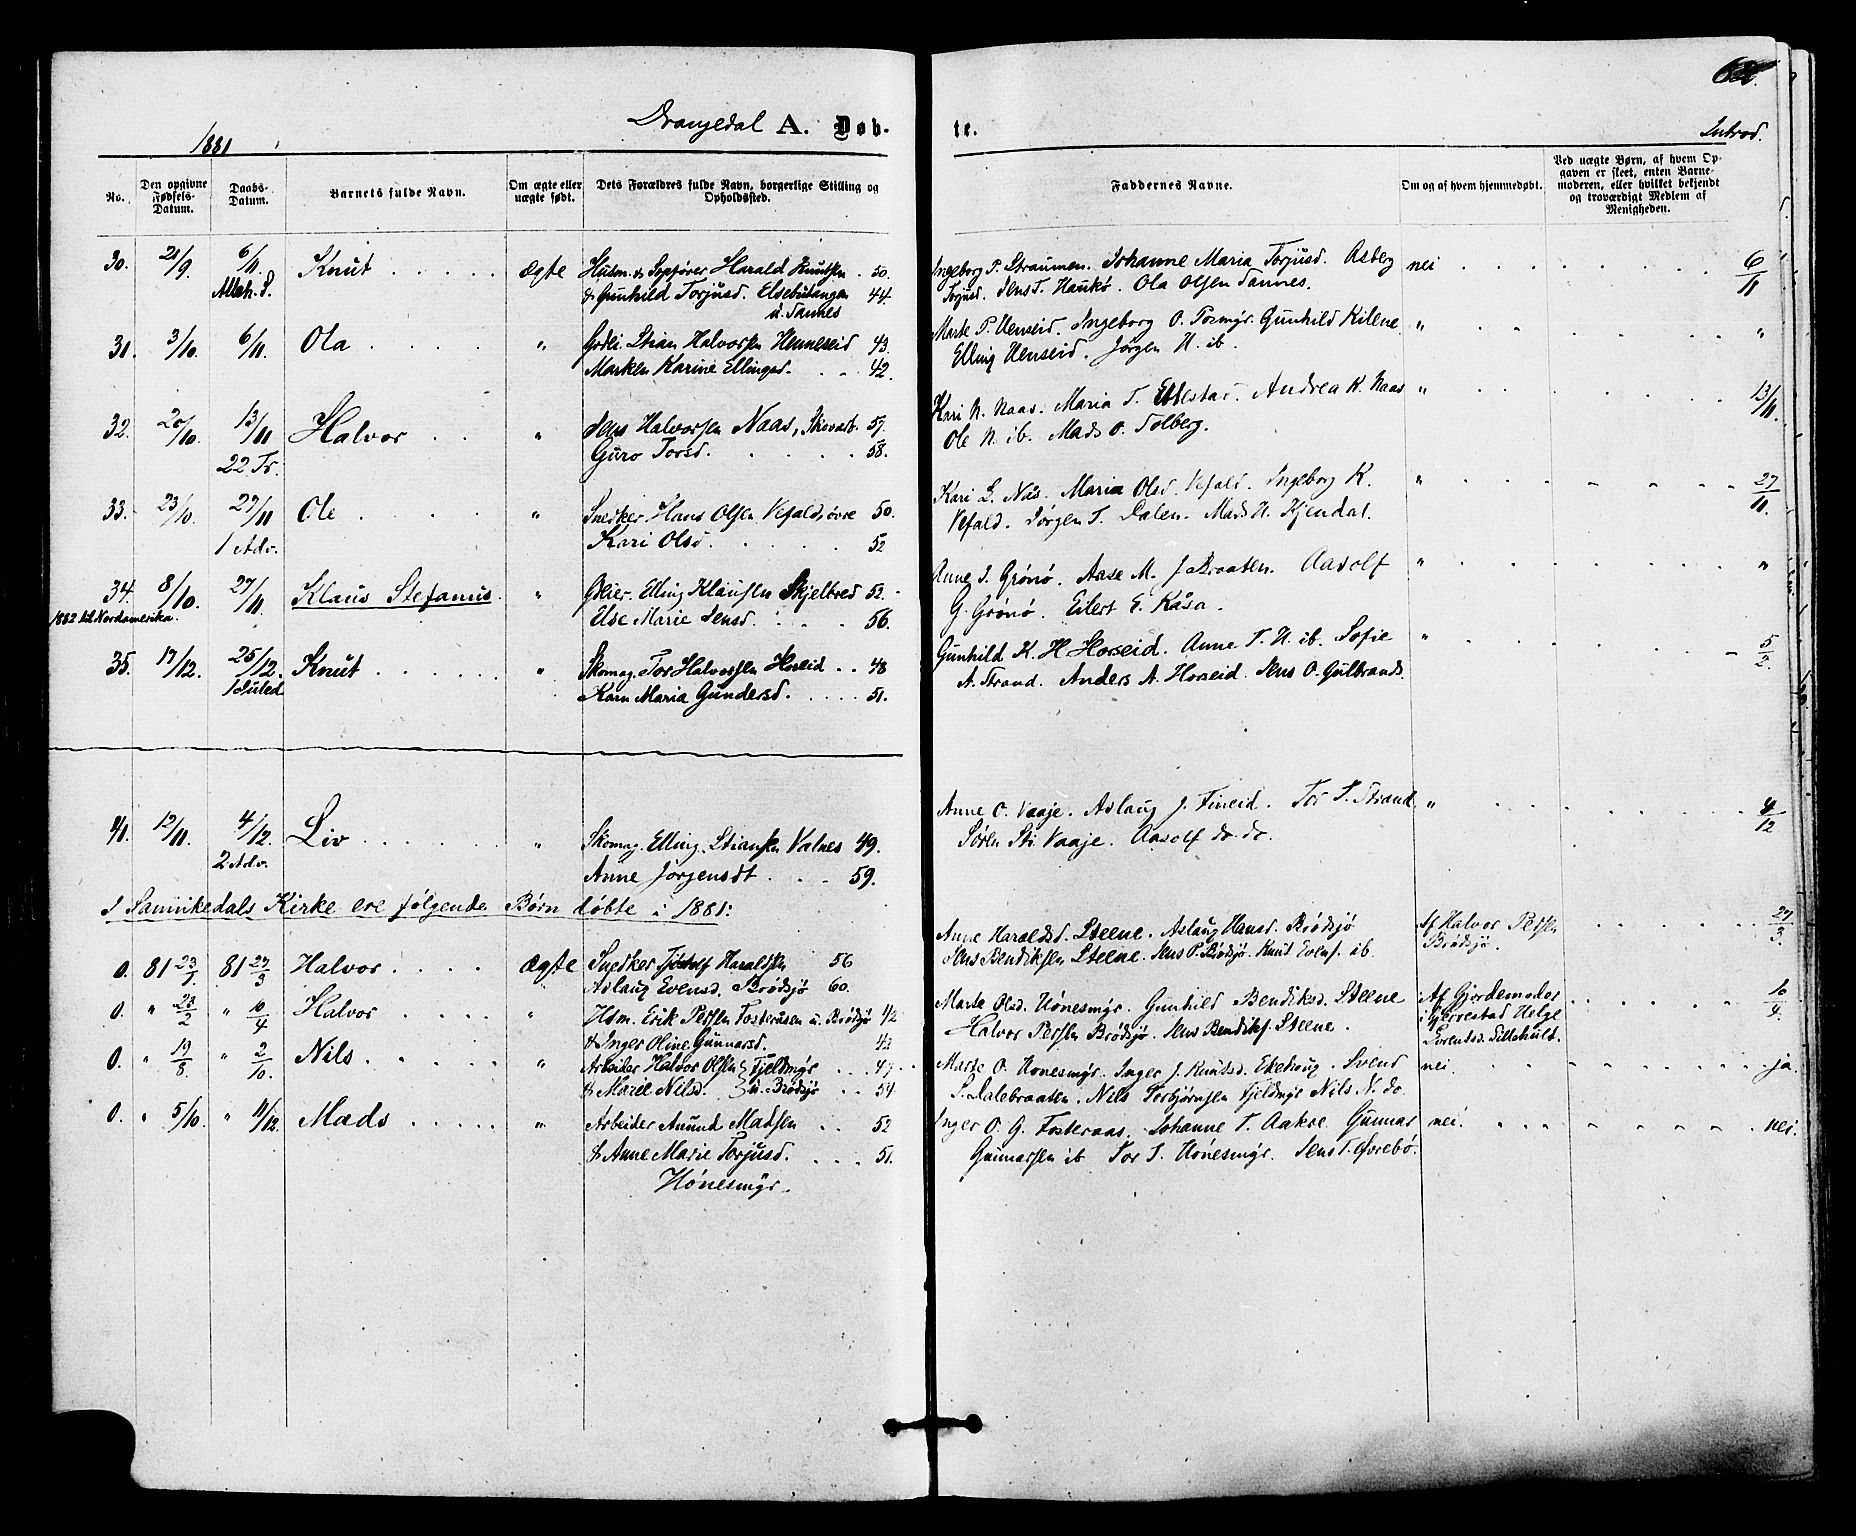 1881
Drangedal A. Døb-
te.
Introd.
No.
Den opgivne Fødsels-Datum.
Daabs-Datum.
Barnets fulde Navn.
Om ægte eller uægte født.
Dets Forældres fulde Navn, borgerlige Stilling og Opholdssted.
Faddernes Navne.
Om og af hvem hjemmedøbt.
Ved uægte Børn, af hvem Op-
gaven er skeet, enten Barne-
moderen, eller hvilket bekjendt
og troværdigt Medlem af
Menigheden.
30. 21/9 6/11 Knut ægte Husm. & Harald Knutsen 50. Ingeborg P. Straumen. Johanne Maria Torjusd. Asberg nei 6/11
Alleh. S. & Gunhild Torjusd. Elsebutangen 44. Torjusd. Jens T. Haukø. Ola Olsen Tannes.
u. Tannes
31. 3/10. 6/11. Ola " Stian Halvorsen Henneseid 43. Marte P. Henseid. Ingeborg O. Tormyr. Gunhild Kilene " "
Marken Karine Ellingsd. 42. Elling Henseid. Jørgen H. ib.
32. 20/10. 13/11 Halvor " Jens Halvorsen Naas, 57. Kari N. Naas. Maria T. Andrea K. Naas " 13/11.
22 Tr. Guro Torsd. 58. Ole N. ib. Mads O. Tolberg.
33. 23/10. 27/11 Ole " Snedker Hans Olsen Vefald, øvre 50. Kari L. Nås. Maria Olsd. Vefald. Ingeborg K. " 27/11.
1 Adv. Kari Olsd. 52 Vefald. Jørgen T. Dalen. Mads H. Kjendal.
34. 8/10. 27/11. Klaus Stefanus " Elling Klausen Skjelbred 52. Anne J. Grønø. Aase M. Aasolf " "
1882 til Nordamerika. Else Marie Jensd. 56. G. Grønø. Eilert E. Kåsa.
35. 17/12. 25/12. Knut " Skomag. Tor Halvorsen 48 Gunhild K. H Horseid. Anne T. H. ib. Sofie " 5/2
1 Juled Karn Maria Gundersd. 51. A. Strand. Anders A. Horseid. Jens O. Gulbrands.
41. 12/11. 4/12. Liv " Skomag. Elling Stiansen Valnes 49. Anne O. Vaaje. Aslaug J. Fineid. Tor T. Strand " 4/12
2 Adv. Anne Jørgensdt 59. Søren St. Vaaje. Aasolf do. do.
I Sannikedals Kirke ere følgende Børn døbte i 1881:
0. 81 23/1 81 27/3 Halvor ægte Snedker Tjøstolf Haralsen 56 Anne Haraldsd. Steene. Aslaug Hansd. Brødsjø Af Halvor Persen 27/3.
Aslaug Evensd. Brødsjø 60. Jens Bendiksen Steene. Jens P. Brødsjø. Knut Evens. ib. Brødsjø.
0. " 23/2 " 10/4 Halvor " Hsm. Erik Persen u. Brødsjø 42 Marte Olsd. Hønesmyr. Gunhild Bendiksd. Steene Af Gjordemoder 10/4.
& Inger Oline Gunnarsd. 42 Halvor Persen Brødsjø. Jens Bendiks. Steene. i Gjerrestad Helge
Lorentsd.
0. " 19/8 " 2/10. Nils " Arbeider Halvor Olsen Fjeldmyr 47 Marte O. Hønesmyr. Inger J. Knutsd. Ekehoug. Svend nei. ja.
& Marie Nilsd. u. Brødsjø 54 S. Dalebraaten. Nils Torbjørnsen Fjeldmyr Nils N. do
0. " 5/10. " 11/12. Mads " Arbeider Anund Madsen 52 Inger O. G. Fosteraas. Johanne T. Aakre. Gunnar nei. nei.
& Anne Marie Torjusd. 51. Gunnarsen ib. Tor T. Hønesmyr. Jens T. Øvrebø.
Hønesmyr.